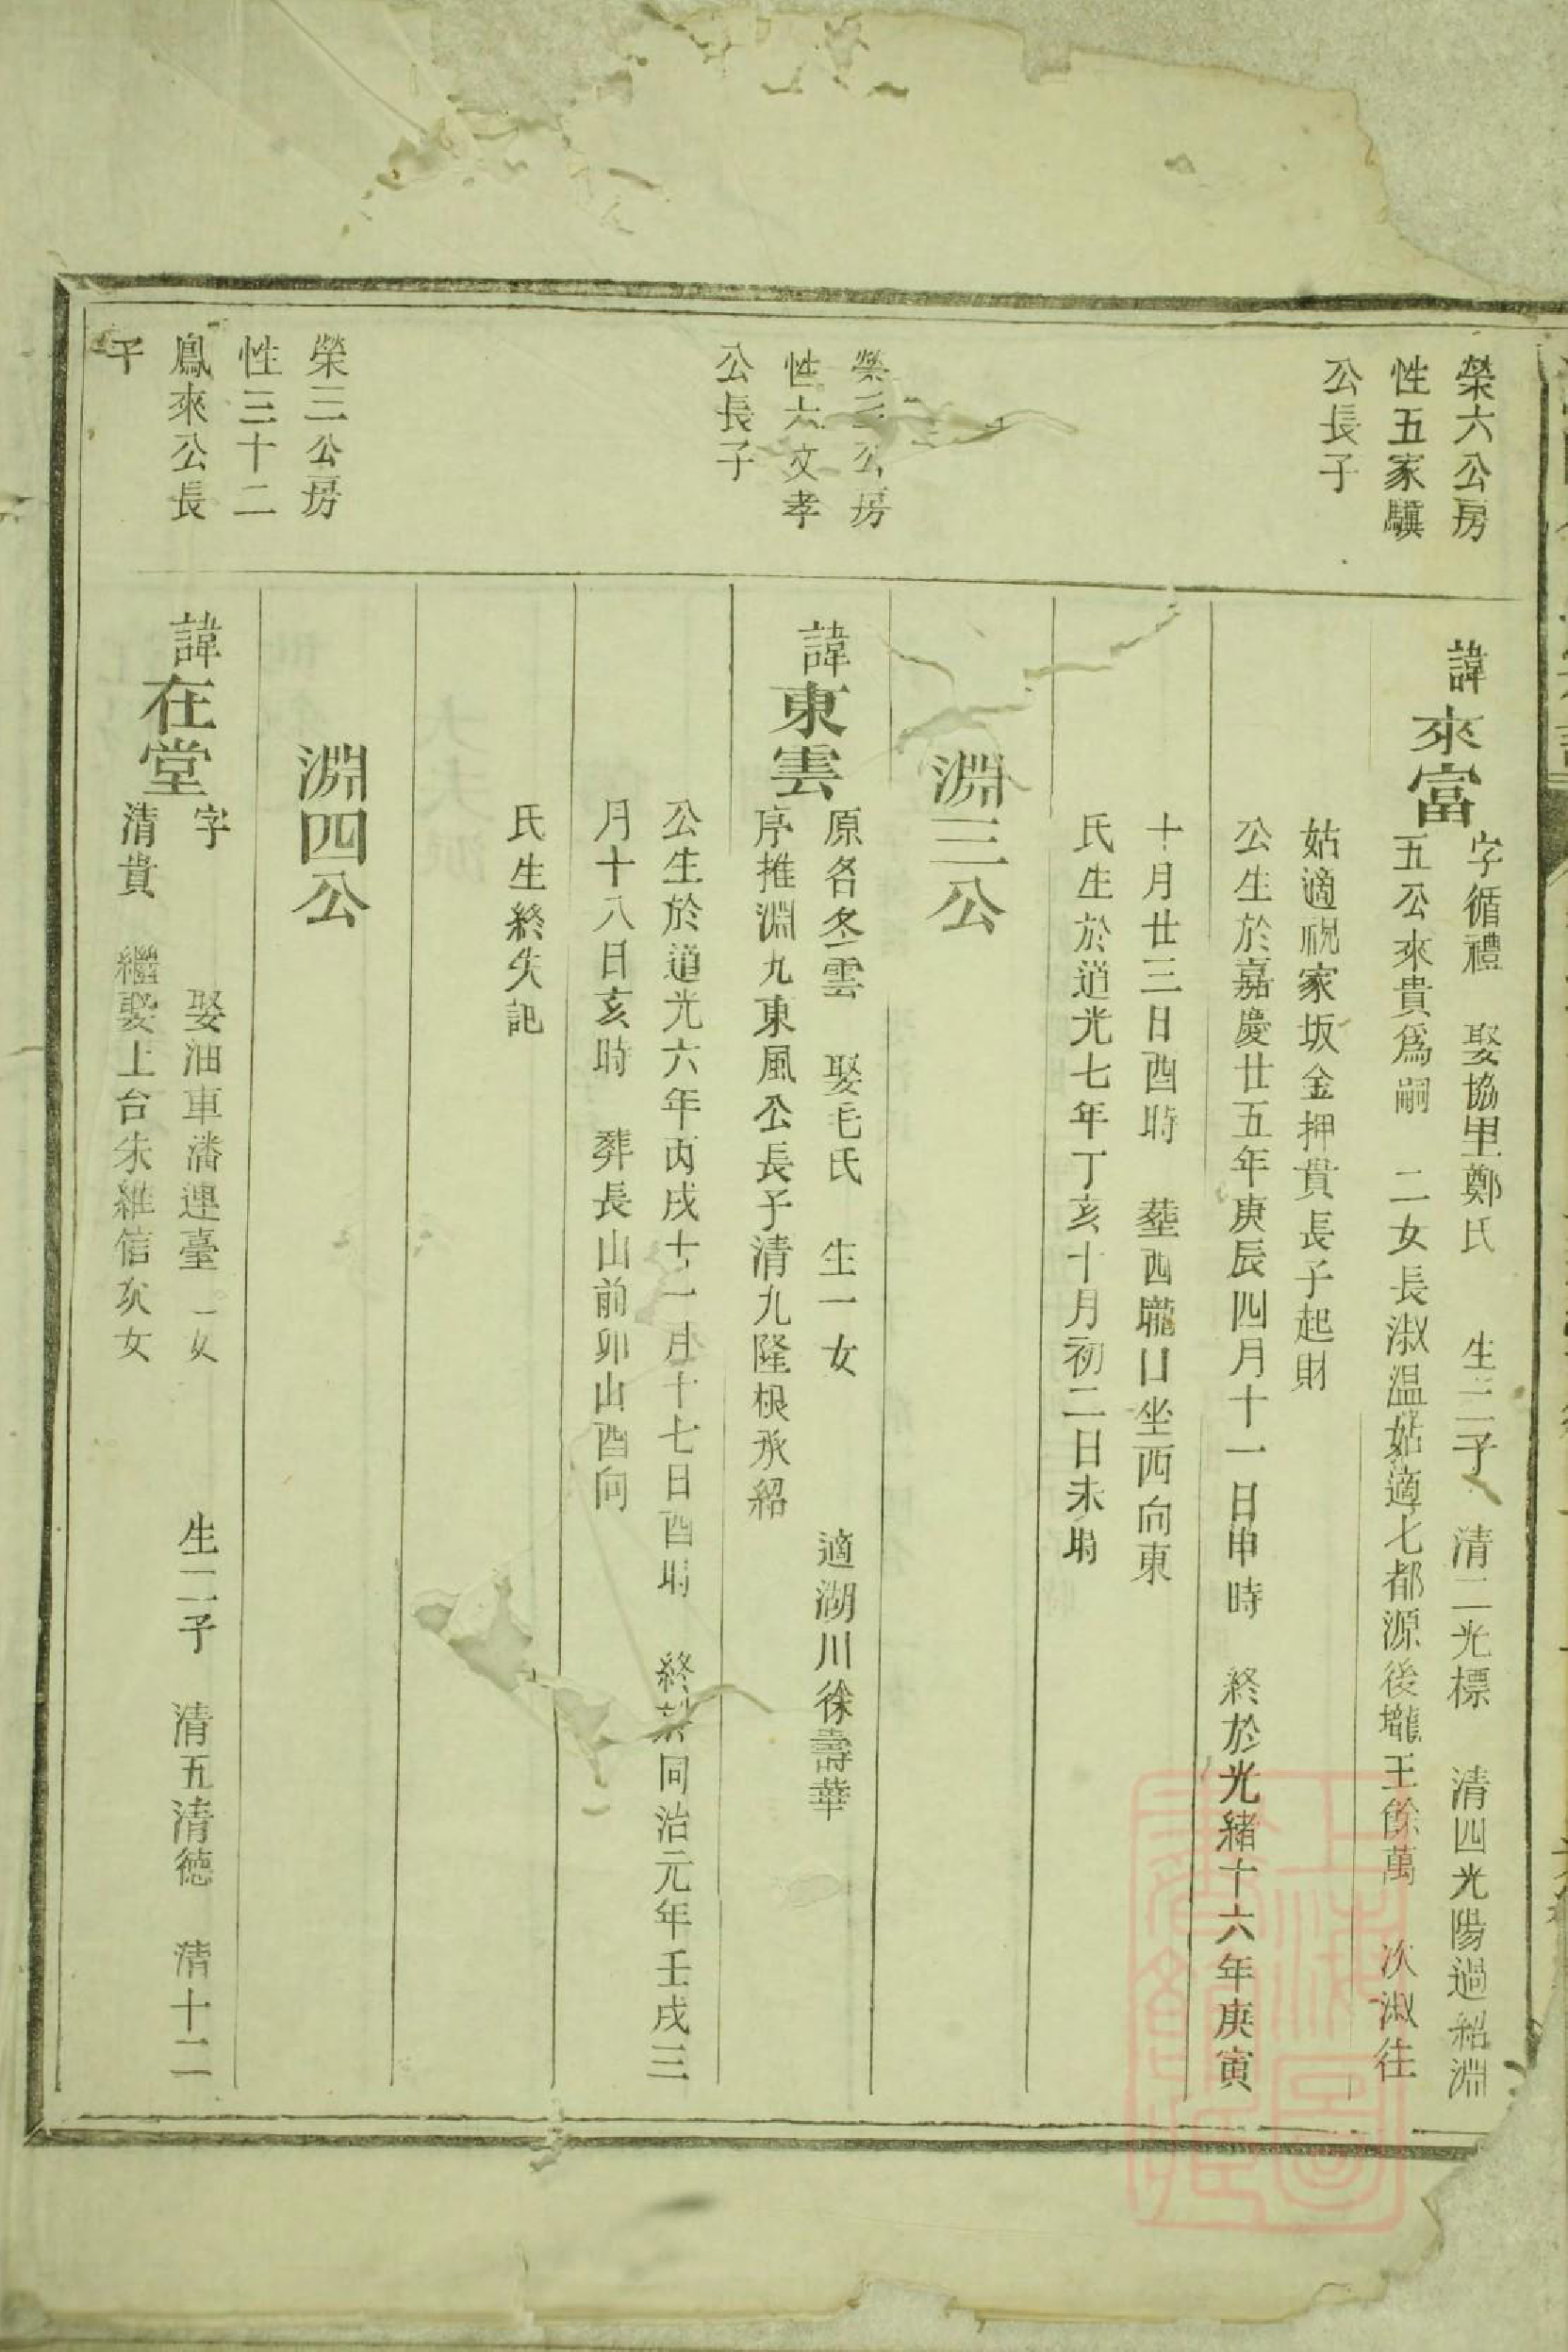 榮六公房
性五家驥
公長子
諱來富
字循禮　娶協里鄭氏　生二子　清二光標　清四光陽過紹淵
五公來貴爲嗣　二女長淑温姑適七都源後壠王餘萬　次淑往
姑適祝家坂金押貴長子起財
公生於嘉慶廿五年庚辰四月十一日申時　終於光緒十六年庚寅
十月廿三日酉時　塟西隴口坐西向東
氏生於道光七年丁亥十月初二日未時
淵三公
榮三公房
性六文孝
公長子
諱東雲
原名冬雲　娶毛氏　生一女　適湖川徐壽華
序推淵九東風公長子清九隆根承紹
公生於道光六年丙戌十一月十七日酉時　終於同治元年壬戌三
月十八日亥時　葬長山前卯山酉向
氏生終失記
淵四公
榮三公房
性三十二
鳳來公長
子
諱在堂
字　娶油車潘連臺女　生二子　清五清德　清十二
清貴　繼娶上台朱維信次女